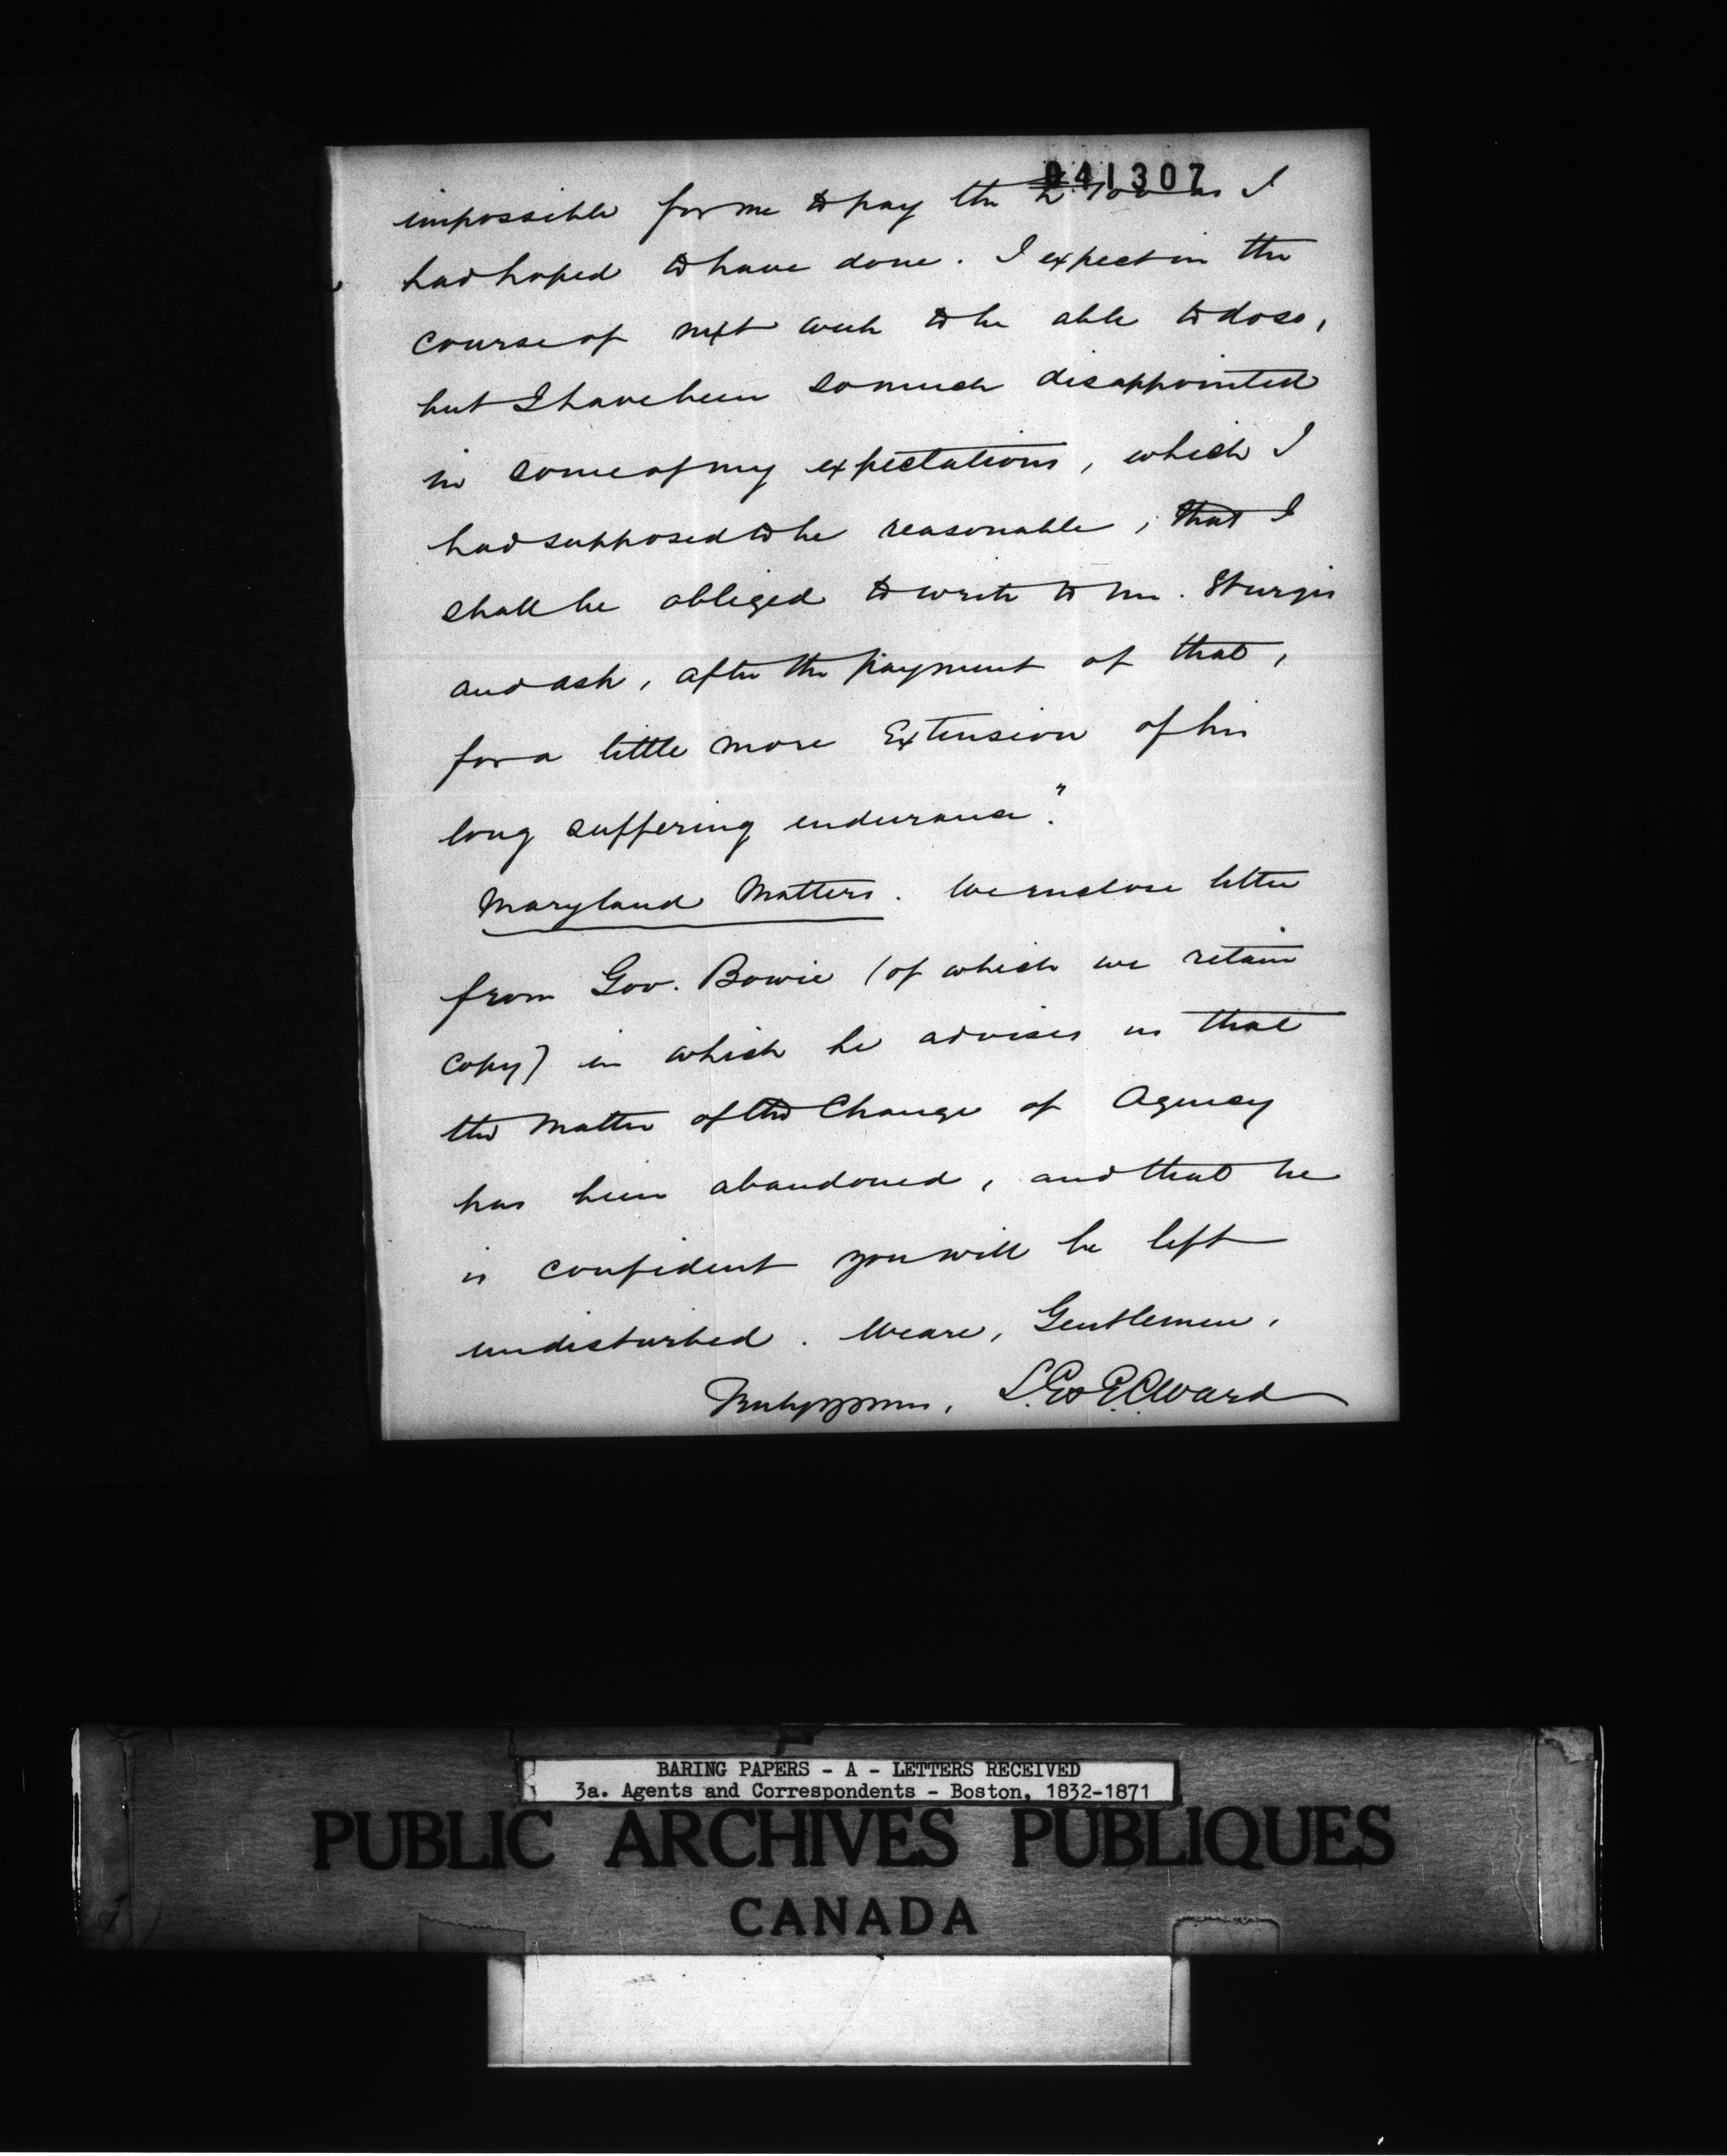 041307
impossible for me to pay the £ 700 as I
had hoped to have done. I expect in the
course of next week to be able to do so,
but I have been so much disappointed
in some of my expectations, which I
had supposed to be reasonable, that I
shall be obliged to write to Mr. Sturgis
and ask, after the payment of that,
for a little more Extension of his
long suffering endurance."
Maryland Matters. We enclose letter
from Gov. Bowie (of which we retain
copy) in which he advises us that
the matter of the Change of Agency
has been abandoned, and that he
is confident you will be left
undisturbed. We are, Gentlemen,
Truly yours, S. G. & G. C. Ward
BARING PAPERS - A - LETTERS RECEIVED
3a. Agents and Correspondents - Boston, 1832-1871
PUBLIC ARCHIVES PUBLIQUES
CANADA